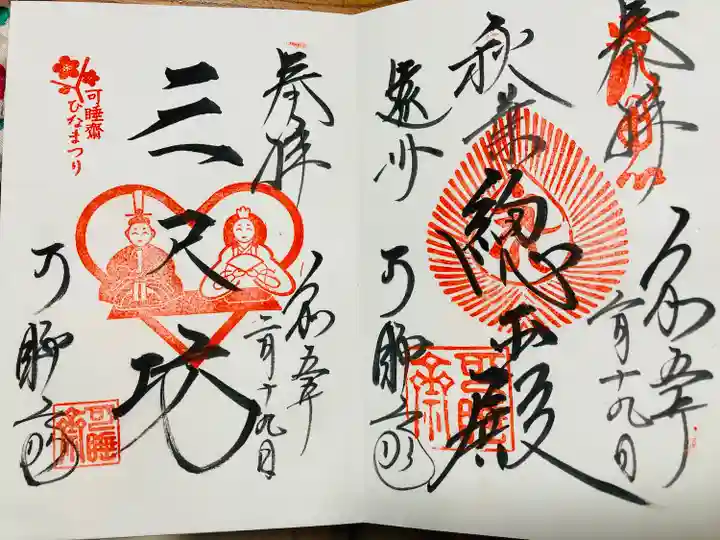 奉拝
令和五年
二月十九日
秋葉總本殿
遠州
可睡斎
奉拝
令和五年
二月十九日
三尺坊
可睡齋
ひなまつり
可睡斎